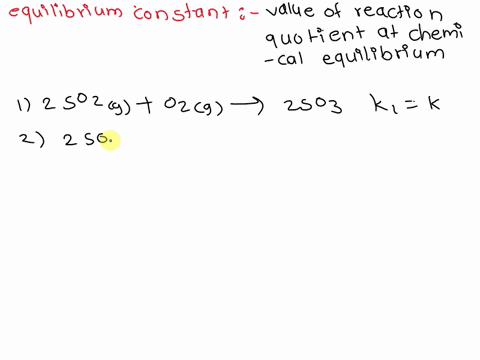 equilibrium constant :- value of reaction
quotient at chemi
-cal equilibrium
1) 2 SO2(g) + O2(g) → 2SO3 k1 = k
2) 2 SO